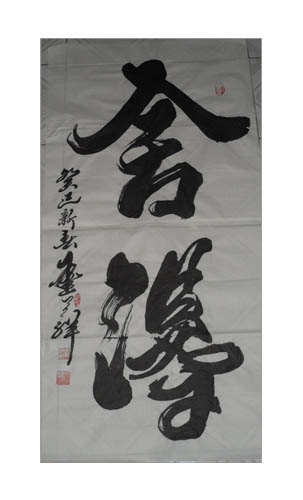 舍得
癸巳新春